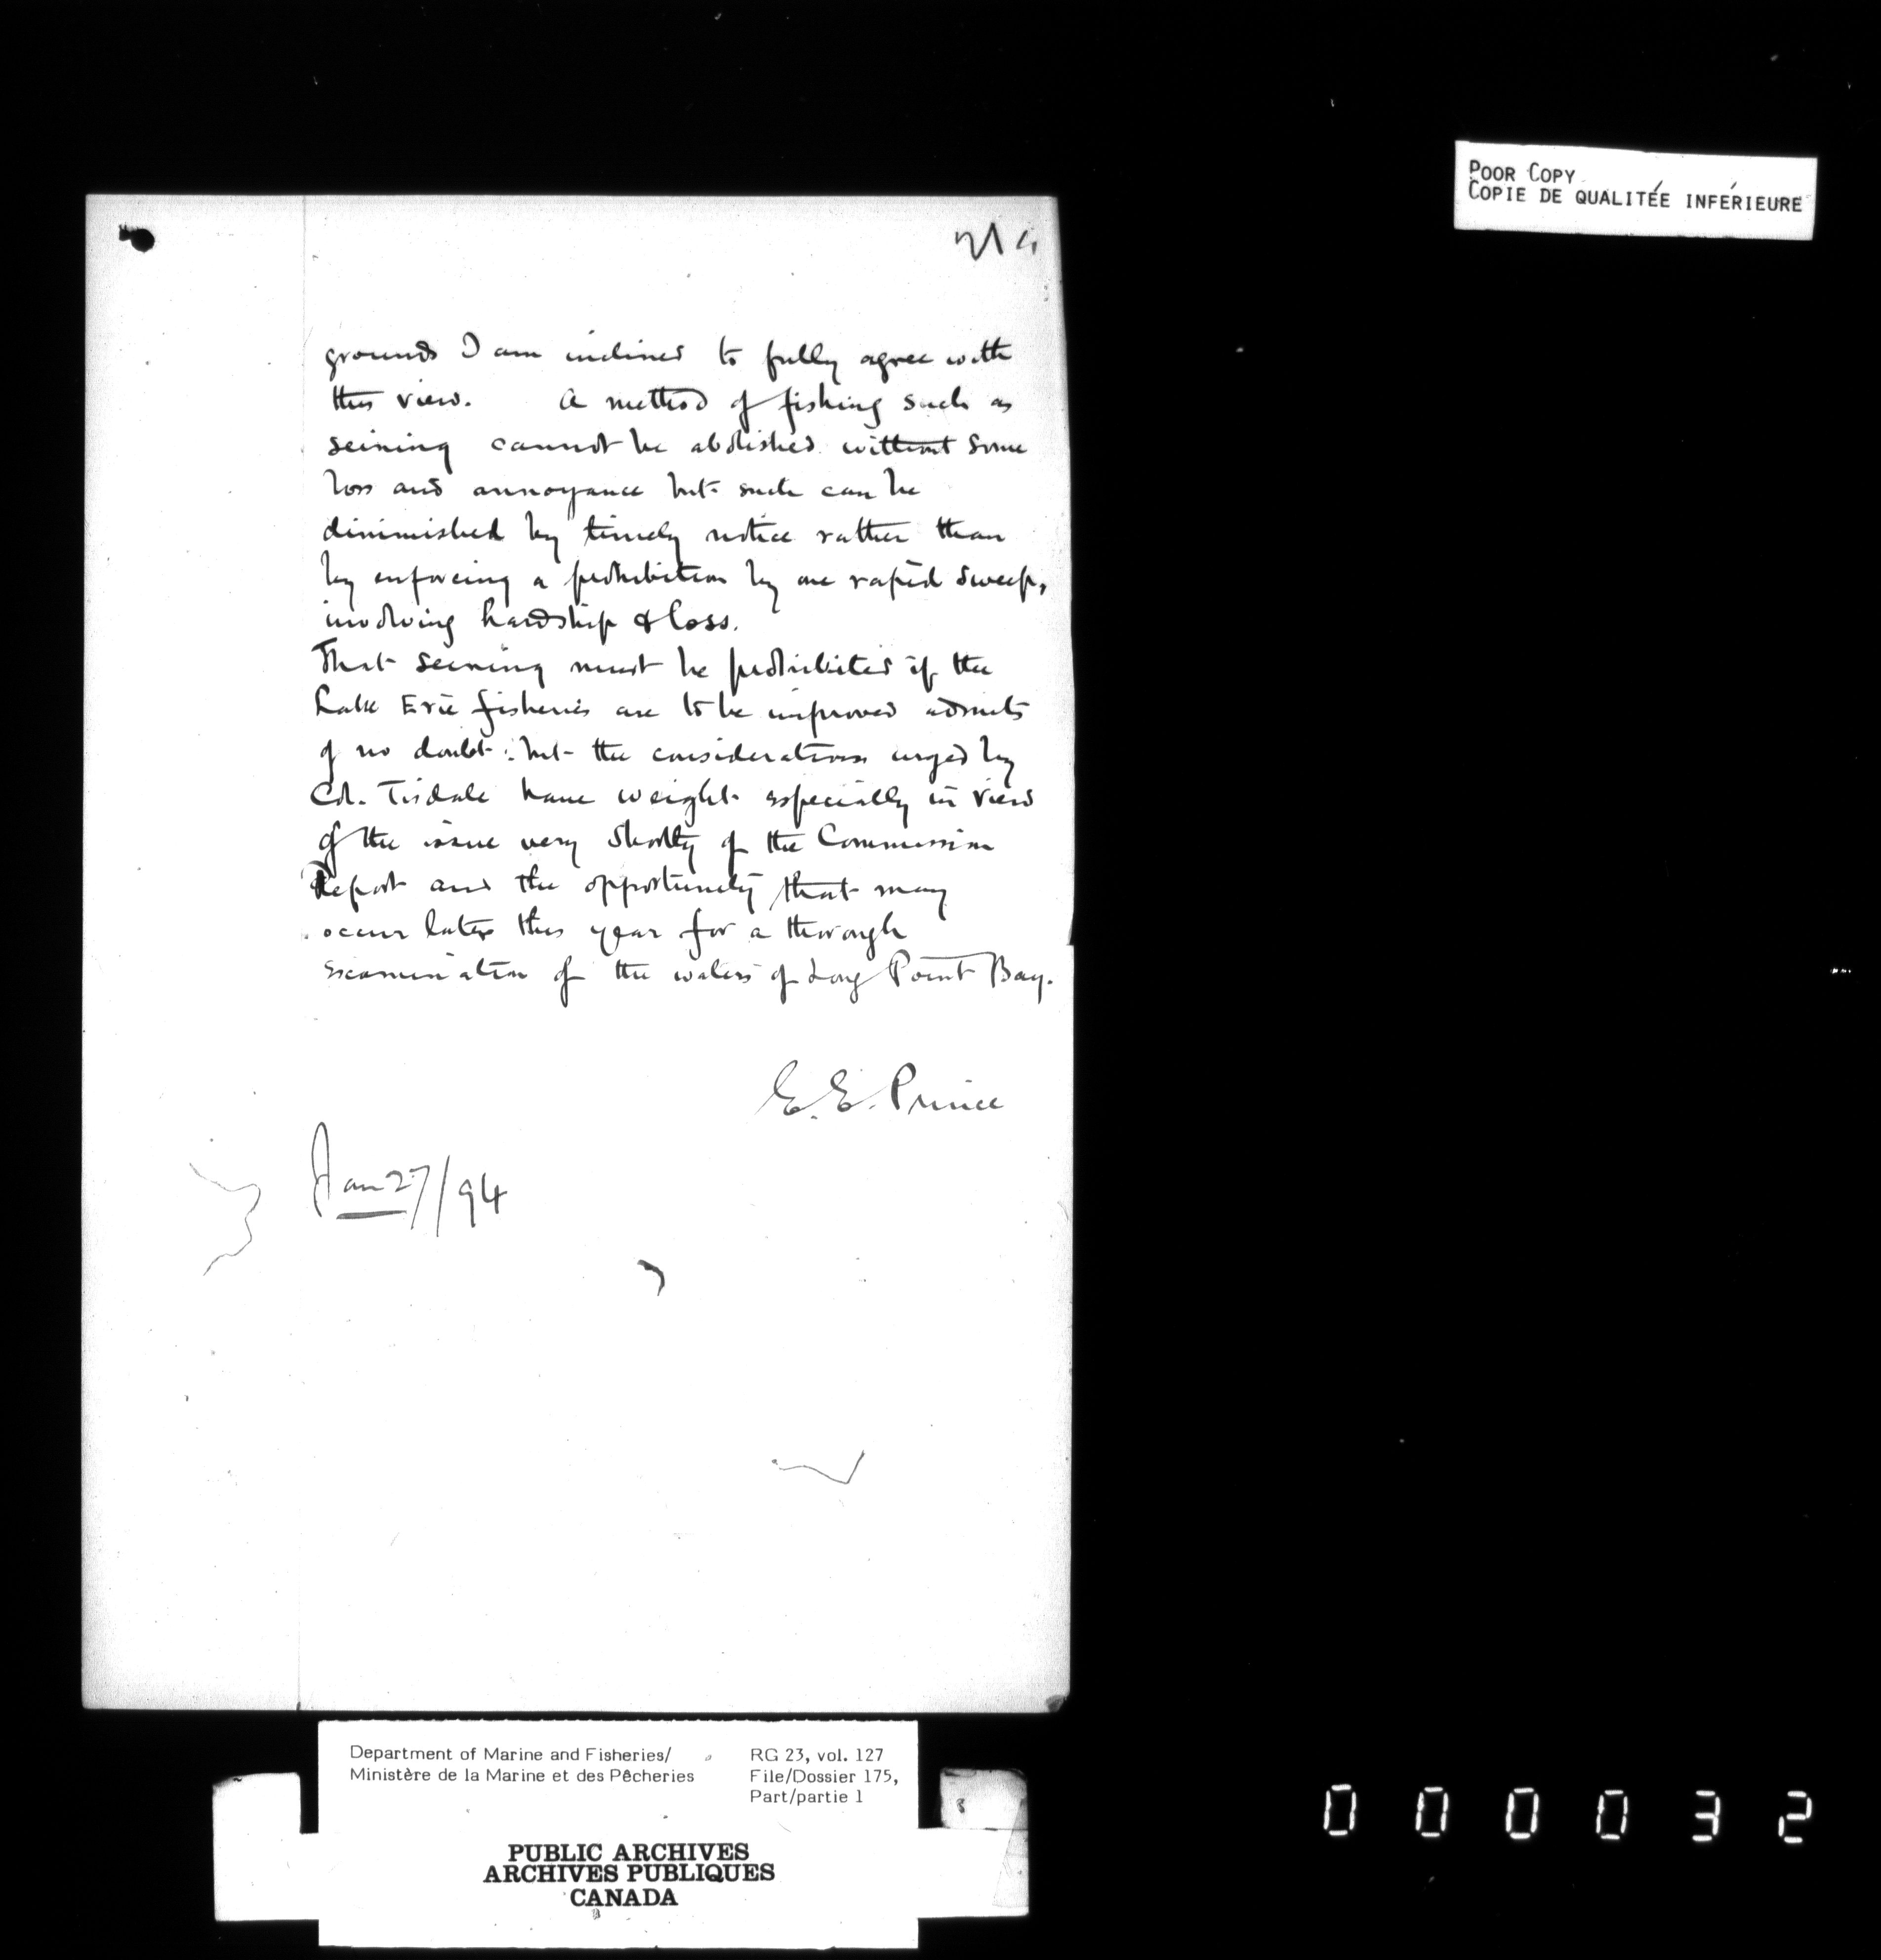 POOR COPY
COPIE DE QUALITÉE INFÉRIEURE
grounds I am inclined to fully agree with
this view. A method of fishing such as
seining cannot be abolished without some
loss and annoyance but such can be
diminished by timely notice rather than
by enforcing a prohibition by one rapid sweep,
involving hardship & loss.
That seining must be prohibited if the
Lake Erie fisheries are to be improved admits
of no doubt: but the considerations urged by
Col. Tisdale have weight especially in view
of the issue very shortly of the Commission
Report and the opportunity that may
occur later this year for a thorough
examination of the waters of Long Point Bay.
E. E. Prince
Jan 27/94
Department of Marine and Fisheries/
Ministère de la Marine et des Pêcheries
RG 23, vol. 127
File/Dossier 175,
Part/partie 1
PUBLIC ARCHIVES
ARCHIVES PUBLIQUES
CANADA
000032